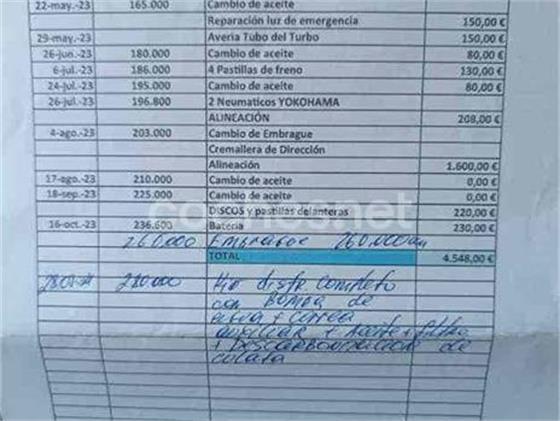 22-may.-23 165.000 Cambio de aceite
Reparación luz de emergencia 150,00 €
29-may.-23 Averia Tubo del Turbo 150,00 €
26-jun.-23 180.000 Cambio de aceite 80,00 €
6-jul.-23 186.000 4 Pastillas de freno 130,00 €
24-jul.-23 195.000 Cambio de aceite 80,00 €
26-jul.-23 196.800 2 Neumaticos YOKOHAMA
ALINEACIÓN 208,00 €
4-ago.-23 203.000 Cambio de Embrague
Cremallera de Dirección
Alineación 1.600,00 €
17-ago.-23 210.000 Cambio de aceite 0,00 €
18-sep.-23 225.000 Cambio de aceite 0,00 €
DISCOS y pastillas delanteras 220,00 €
16-oct.-23 236.600 Bateria 230,00 €
260.000 Embrague 260.000 km
TOTAL 4.548,00 €
280.000 Kit distr. completo
con BOMBA de
agua + correa
auxiliar + aceite + filtro
+ DESCARBONIZACION de
culata